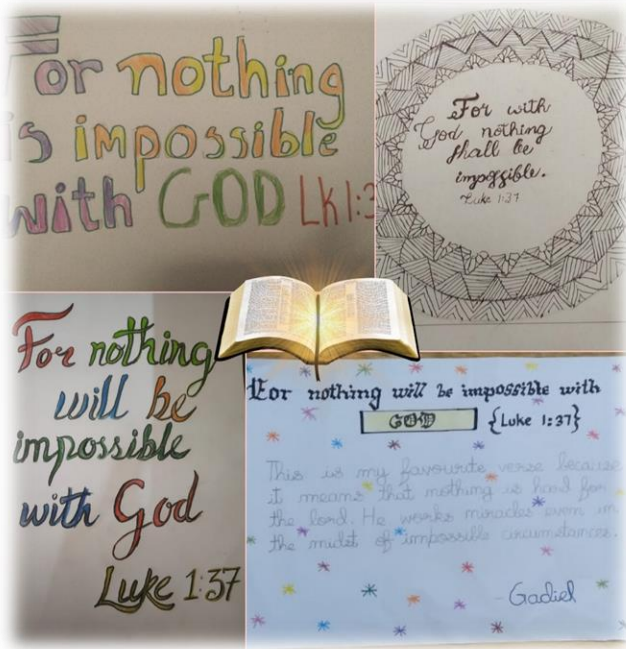 For nothing
is impossible
with GOD Lk 1:3
For with
God nothing
shall be
impossible.
Luke 1:37
For nothing
will be
impossible
with God
Luke 1:37
For nothing will be impossible with
GOD {Luke 1:37}
This is my favourite verse because
it means that nothing is hard for
the lord. He works miracles even in
the midst of impossible circumstances.
- Gadiel